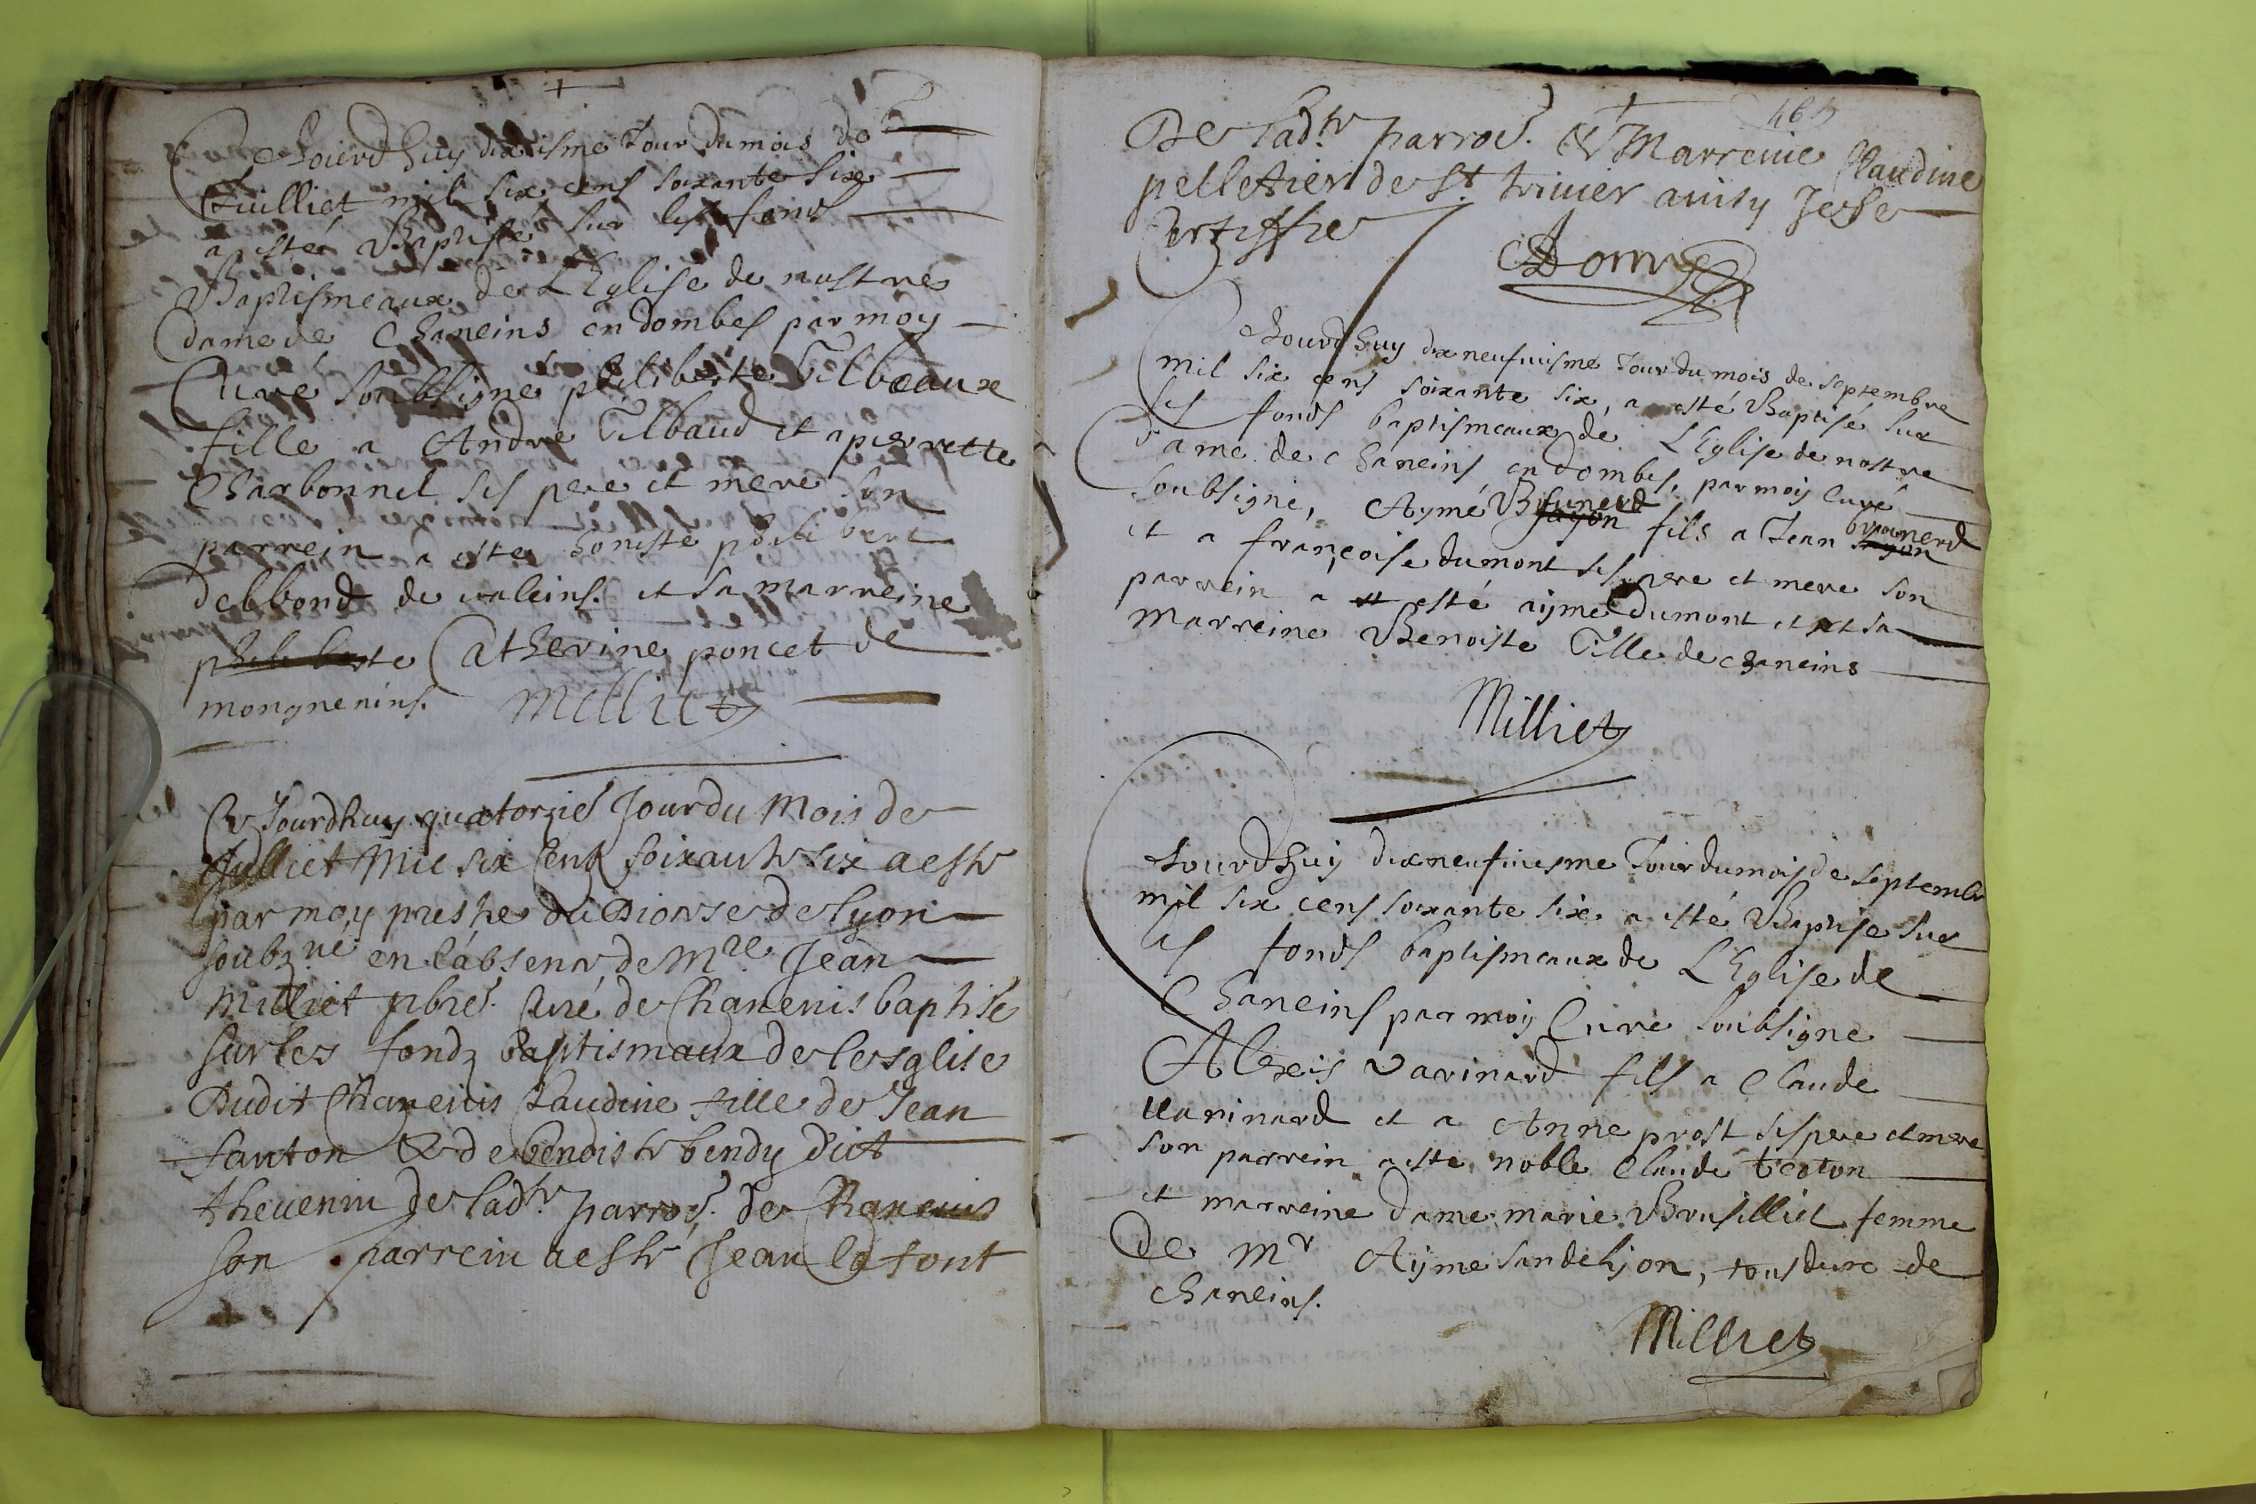 Ce Jourd huy dixiesme Jour du mois de
Juilliet mil six cens soixante six
a esté Baptisée sur les fons
Baptismeaux de L'Eglise de nostre
dame de Chaneins en dombes par moy
Cure soubsigne philiberte Tilbeaux
fille a Andre Tilbaud et a pierrette
Charbonnel ses pere et mere son
parrein a este honeste philibert
debbond de valeins. et sa marreine
philiberte Catherine poncet de
mongnenins. Milliet
Ce Jourdhuy quatorzie Jour du Mois de
Julliet Mil six Cent soixante six a este
par moy prestre du Diocese de lyon
soubzné en l'absence de Mre Jean
Milliet pbre. Curé de Chaneins baptisé
sur les fondz baptismaux de lesglise
Dudit Chaneins Claudine fille de Jean
santon & de benoiste bendy dict
thevenin de ladte parroe. de Chaneins
son parrein a esté Jean lafont
De ladte parroe. & Marreine Claudine
pelletier de St trivier ainsy Je le
Certiffie
Ce Jourd huy dix neufviesme Jour du mois de septembre
mil six cens soixante six, a esté Baptisé sur
les fonds baptismeaux de L'Eglise de nostre
dame de Chaneins en dombes, par moy Curé
soubsigne, Aymé fils a Jean
et a françoise dumont ses pere et mere son
parrein a esté ayme dumont et sa
marreine Benoiste Tille de chaneins
Milliet
Jourd huy dix neufviesme Jour du mois de septembre
mil six cens soixante six a esté Baptise sur
les fonds baptismeaux de L'Eglise de
Chaneins par moy Cure soubsigne
Alexis varinard fils a Claude
Varinard et a Anne prost ses pere et mere
son parrein a este noble Claude trotton
et marreine dame marie Brusilliet femme
de Mr Ayme sandelyon, tous dure de
chaneins.
Milliet